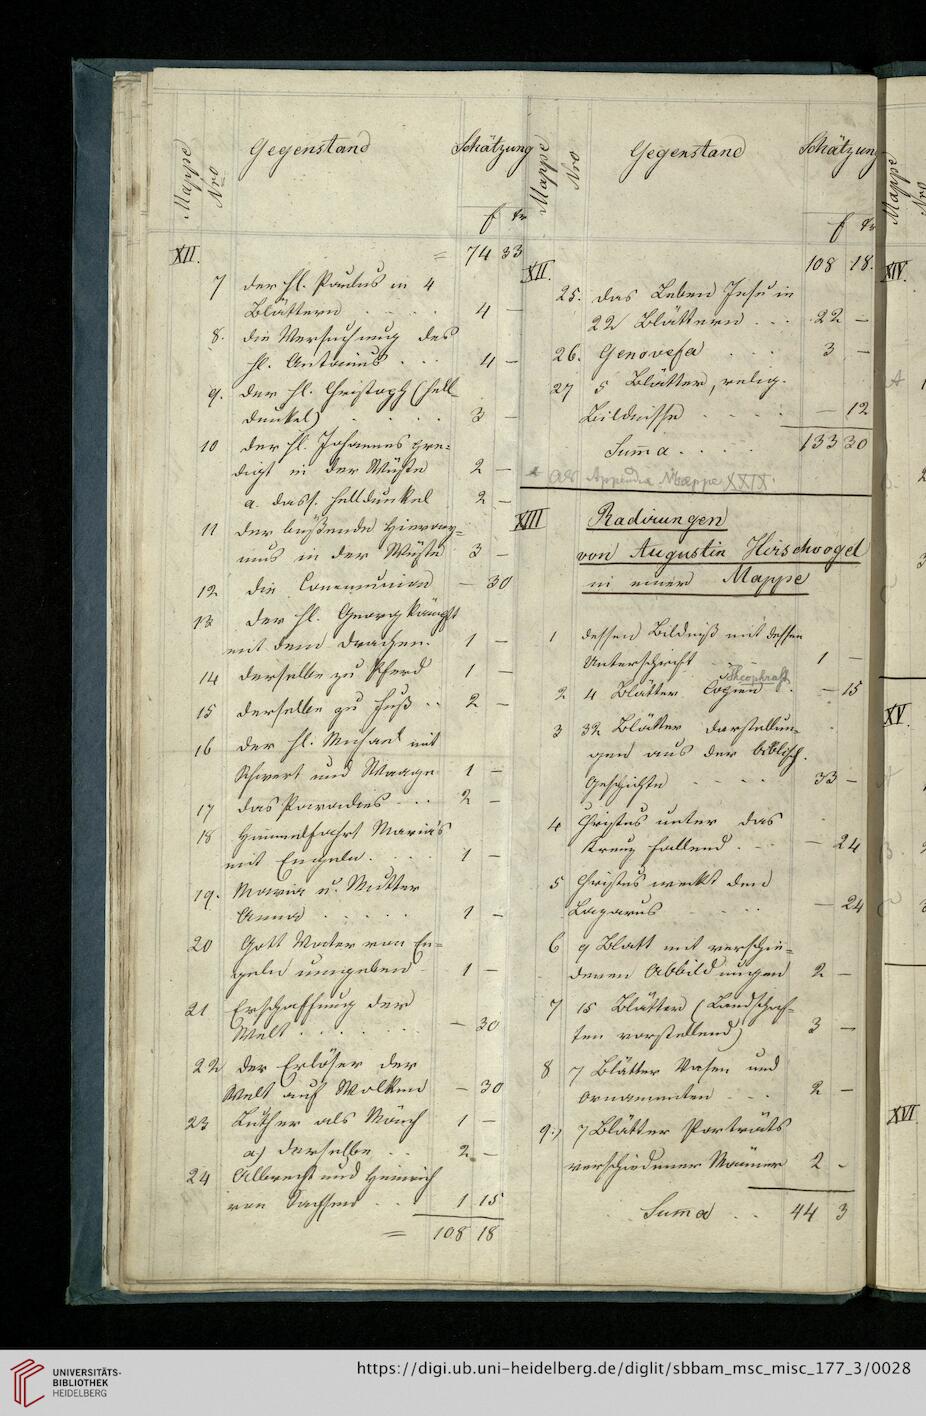 Mappe Nro Gegenstand Schätzung
f xr
XII. = 74 33
7 der hl. Paulus in 4
Blättern . . . . 4 —
8. die Versuchung des
hl. Antonius . . . 4 —
9. der hl. Christoph (hell
dunkel) . . . . 3 —
10 der hl. Johannes pre=
digt in der Wüste 2 —
a. dass. helldunkel 2 —
11 der büßende Hierony=
mus in der Wüste 3 —
12 die Communion — 30
13 der hl. Georg kämpft
mit dem Drachen. 1 —
14 derselbe zu Pferd 1 —
15 derselbe zu Fuß . . 2 —
16 der hl. Michael mit
Schwert und Waage 1 —
17 das Paradies . . . 2 —
18 Himmelfahrt Mariä's
mit Engeln . . . . 1 —
19. Maria u. Mutter
Anna . . . . . 1 —
20 Gott Vater von En=
geln umgeben 1 —
21 Erschaffung der
Welt . . . . . . — 30
22 der Erlöser der
Welt auf Wolken — 30
23 Luther als Mönch 1 —
a) derselbe . . 2. —
24 Albrecht und Heinrich
von Sachsen . . 1 15
= 108 18
Mappe Nro Gegenstand Schätzung
f xr
XII. 108 18.
25. das Leben Jesu in
22 Blättern . . . 22 —
26. Genovefa . . . 3 —
27 5 Blätter, relig.
Bildnisse . . . . — 12
Summa . . . . 133 30
Appendix Mappe XXIX.
XIII Radirungen
von Augustin Hirschvogel
in einer Mappe
1 dessen Bildniß mit dessen
Unterschrift . . . 1 —
Theophrast
2 4 Blätter Copien . — 15
3 32 Blätter Darstellun=
gen aus der biblisch.
Geschichte . . . . 33 —
4 Christus unter das
Kreuz fallend . . . — 24
5 Christus weckt den
Lazarus . . . . — 24
6 9 Blatt mit verschie=
denen Abbildungen 2 —
7 15 Blätter (Landschaf=
ten vorstellend) 3 —
8 7 Blätter Vasen und
Ornamenten . . . 2 —
9.) 7 Blätter Porträts
verschiedener Männer 2 -
Summa . . 44 3
Mappe Nro
XIV.
XV.
XVI.
UNIVERSITÄTS-
BIBLIOTHEK
HEIDELBERG
https://digi.ub.uni-heidelberg.de/diglit/sbbam_msc_misc_177_3/0028